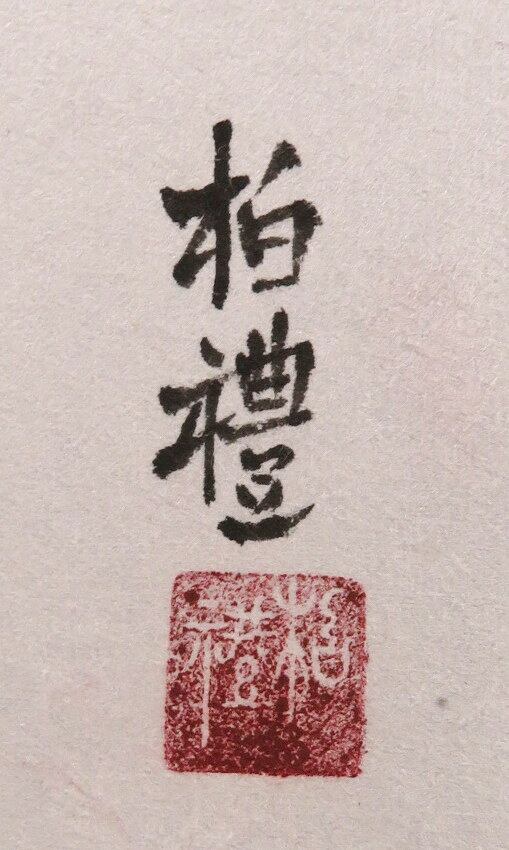 柏禮
柏禮